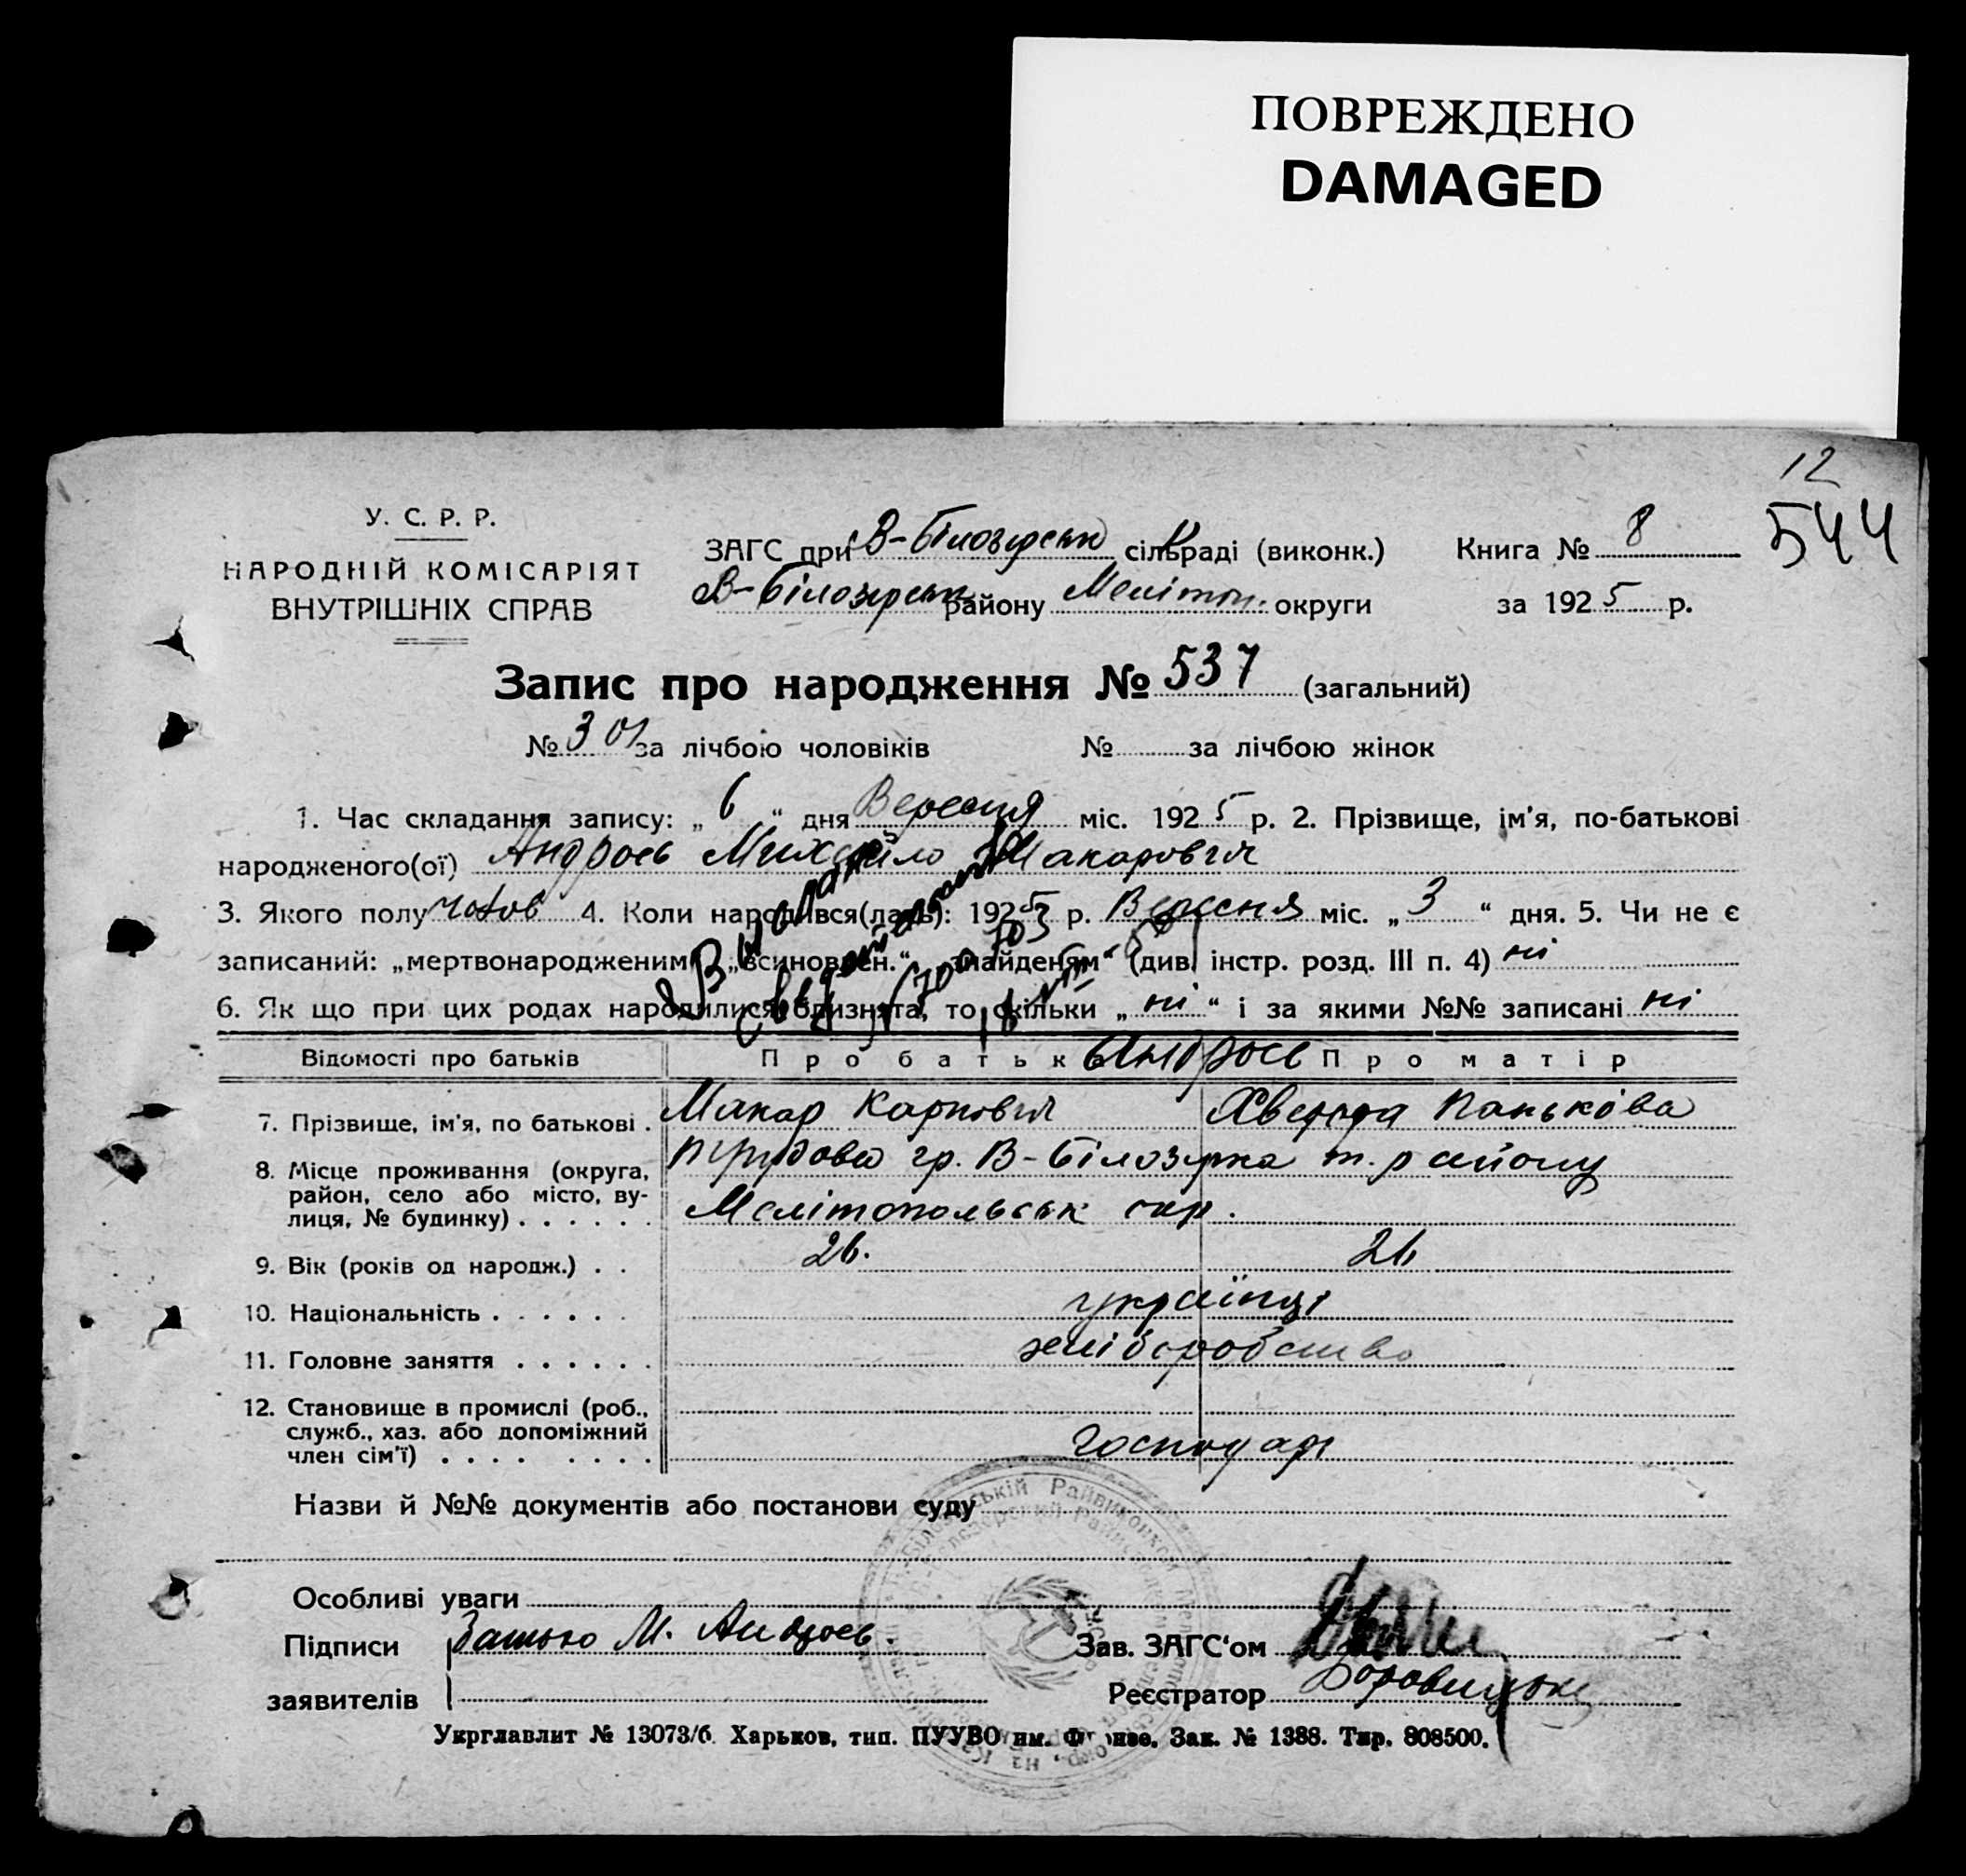 ПОВРЕЖДЕНО
DAMAGED
12
544
У. С. Р. Р.
НАРОДНІЙ КОМІСАРІЯТ
ВНУТРІШНІХ СПРАВ
ЗАГС при В-Білозірськ сільраді (виконк.) Книга № 8
В-Білозірськ району Мелітоп. округи за 1925 р.
Запис про народження № 537 (загальний)
№ 301 за лічбою чоловіків № за лічбою жінок
1. Час складання запису: „6“ дня Вересня міс. 1925 р. 2. Прізвище, ім'я, по-батькові
народженого(ої) Андроєв Михайло Макарович
3. Якого полу чолов 4. Коли народився(лась): 1925 р. Вересня міс. „3“ дня. 5. Чи не є
записаний: „мертвонародженим“ „всиновлен.“ „знайденям“ (див. інстр. розд. III п. 4) ні
6. Як що при цих родах народилися близнята, то скільки „ні“ і за якими №№ записані ні
Відомості про батьків Про батька Андроєв Про матір
7. Прізвище, ім'я, по батькові . Макар Карпович Хвеода Панькова
8. Місце проживання (округа, гр. В-Білозірка т. району
район, село або місто, ву-
лиця, № будинку) . . . . . . Мелітопольськ окр.
9. Вік (років од народж.) . . 26. 26
10. Національність . . . . . . українці
11. Головне заняття . . . . . . хліборобство
12. Становище в промислі (роб.,
служб., хаз. або допоміжний
член сім'ї) . . . . . . . . господарі
Назви й №№ документів або постанови суду
Особливі уваги
Підписи Батько М. Андроєв. Зав. ЗАГС'ом
заявителів Реєстратор
Укрглавлит № 13073/б. Харьков, тип. ПУУВО им. Фрунзе. Зак. № 1388. Тир. 808500.